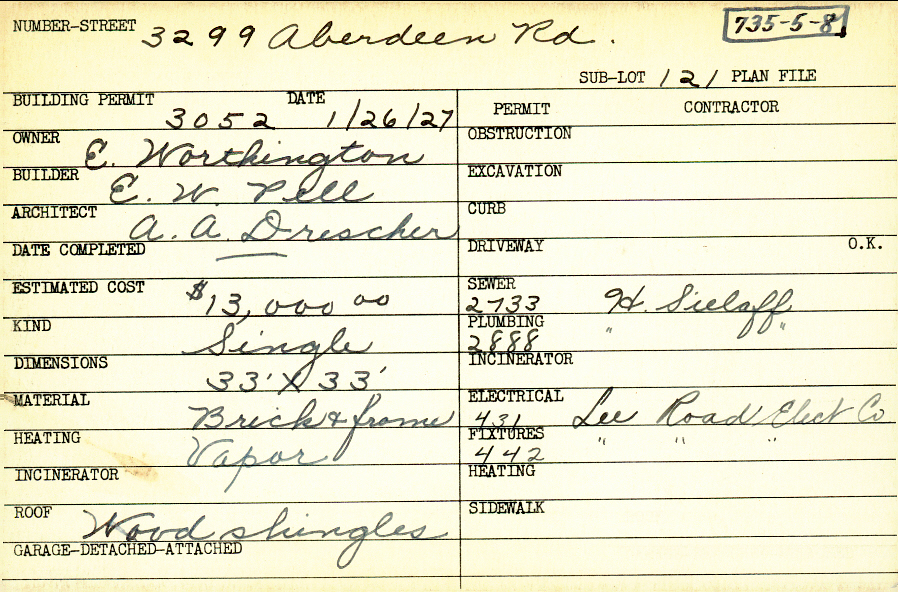 NUMBER-STREET 3299 Aberdeen Rd. 735-5-8
SUB-LOT 121 PLAN FILE
BUILDING PERMIT 3052 DATE 1/26/27
PERMIT CONTRACTOR
OWNER E. Worthington
OBSTRUCTION
BUILDER E. W. Pell
EXCAVATION
ARCHITECT A. A. Drescher
CURB
DATE COMPLETED —
DRIVEWAY O.K.
ESTIMATED COST $13,000 00
SEWER 2733 H. Sielaff
KIND Single
PLUMBING 2888 " "
DIMENSIONS 33' X 33'
INCINERATOR
MATERIAL Brick & frame
ELECTRICAL 431 Lee Road Elect Co
HEATING Vapor
FIXTURES 442 " " "
INCINERATOR
HEATING
ROOF Wood shingles
SIDEWALK
GARAGE-DETACHED-ATTACHED